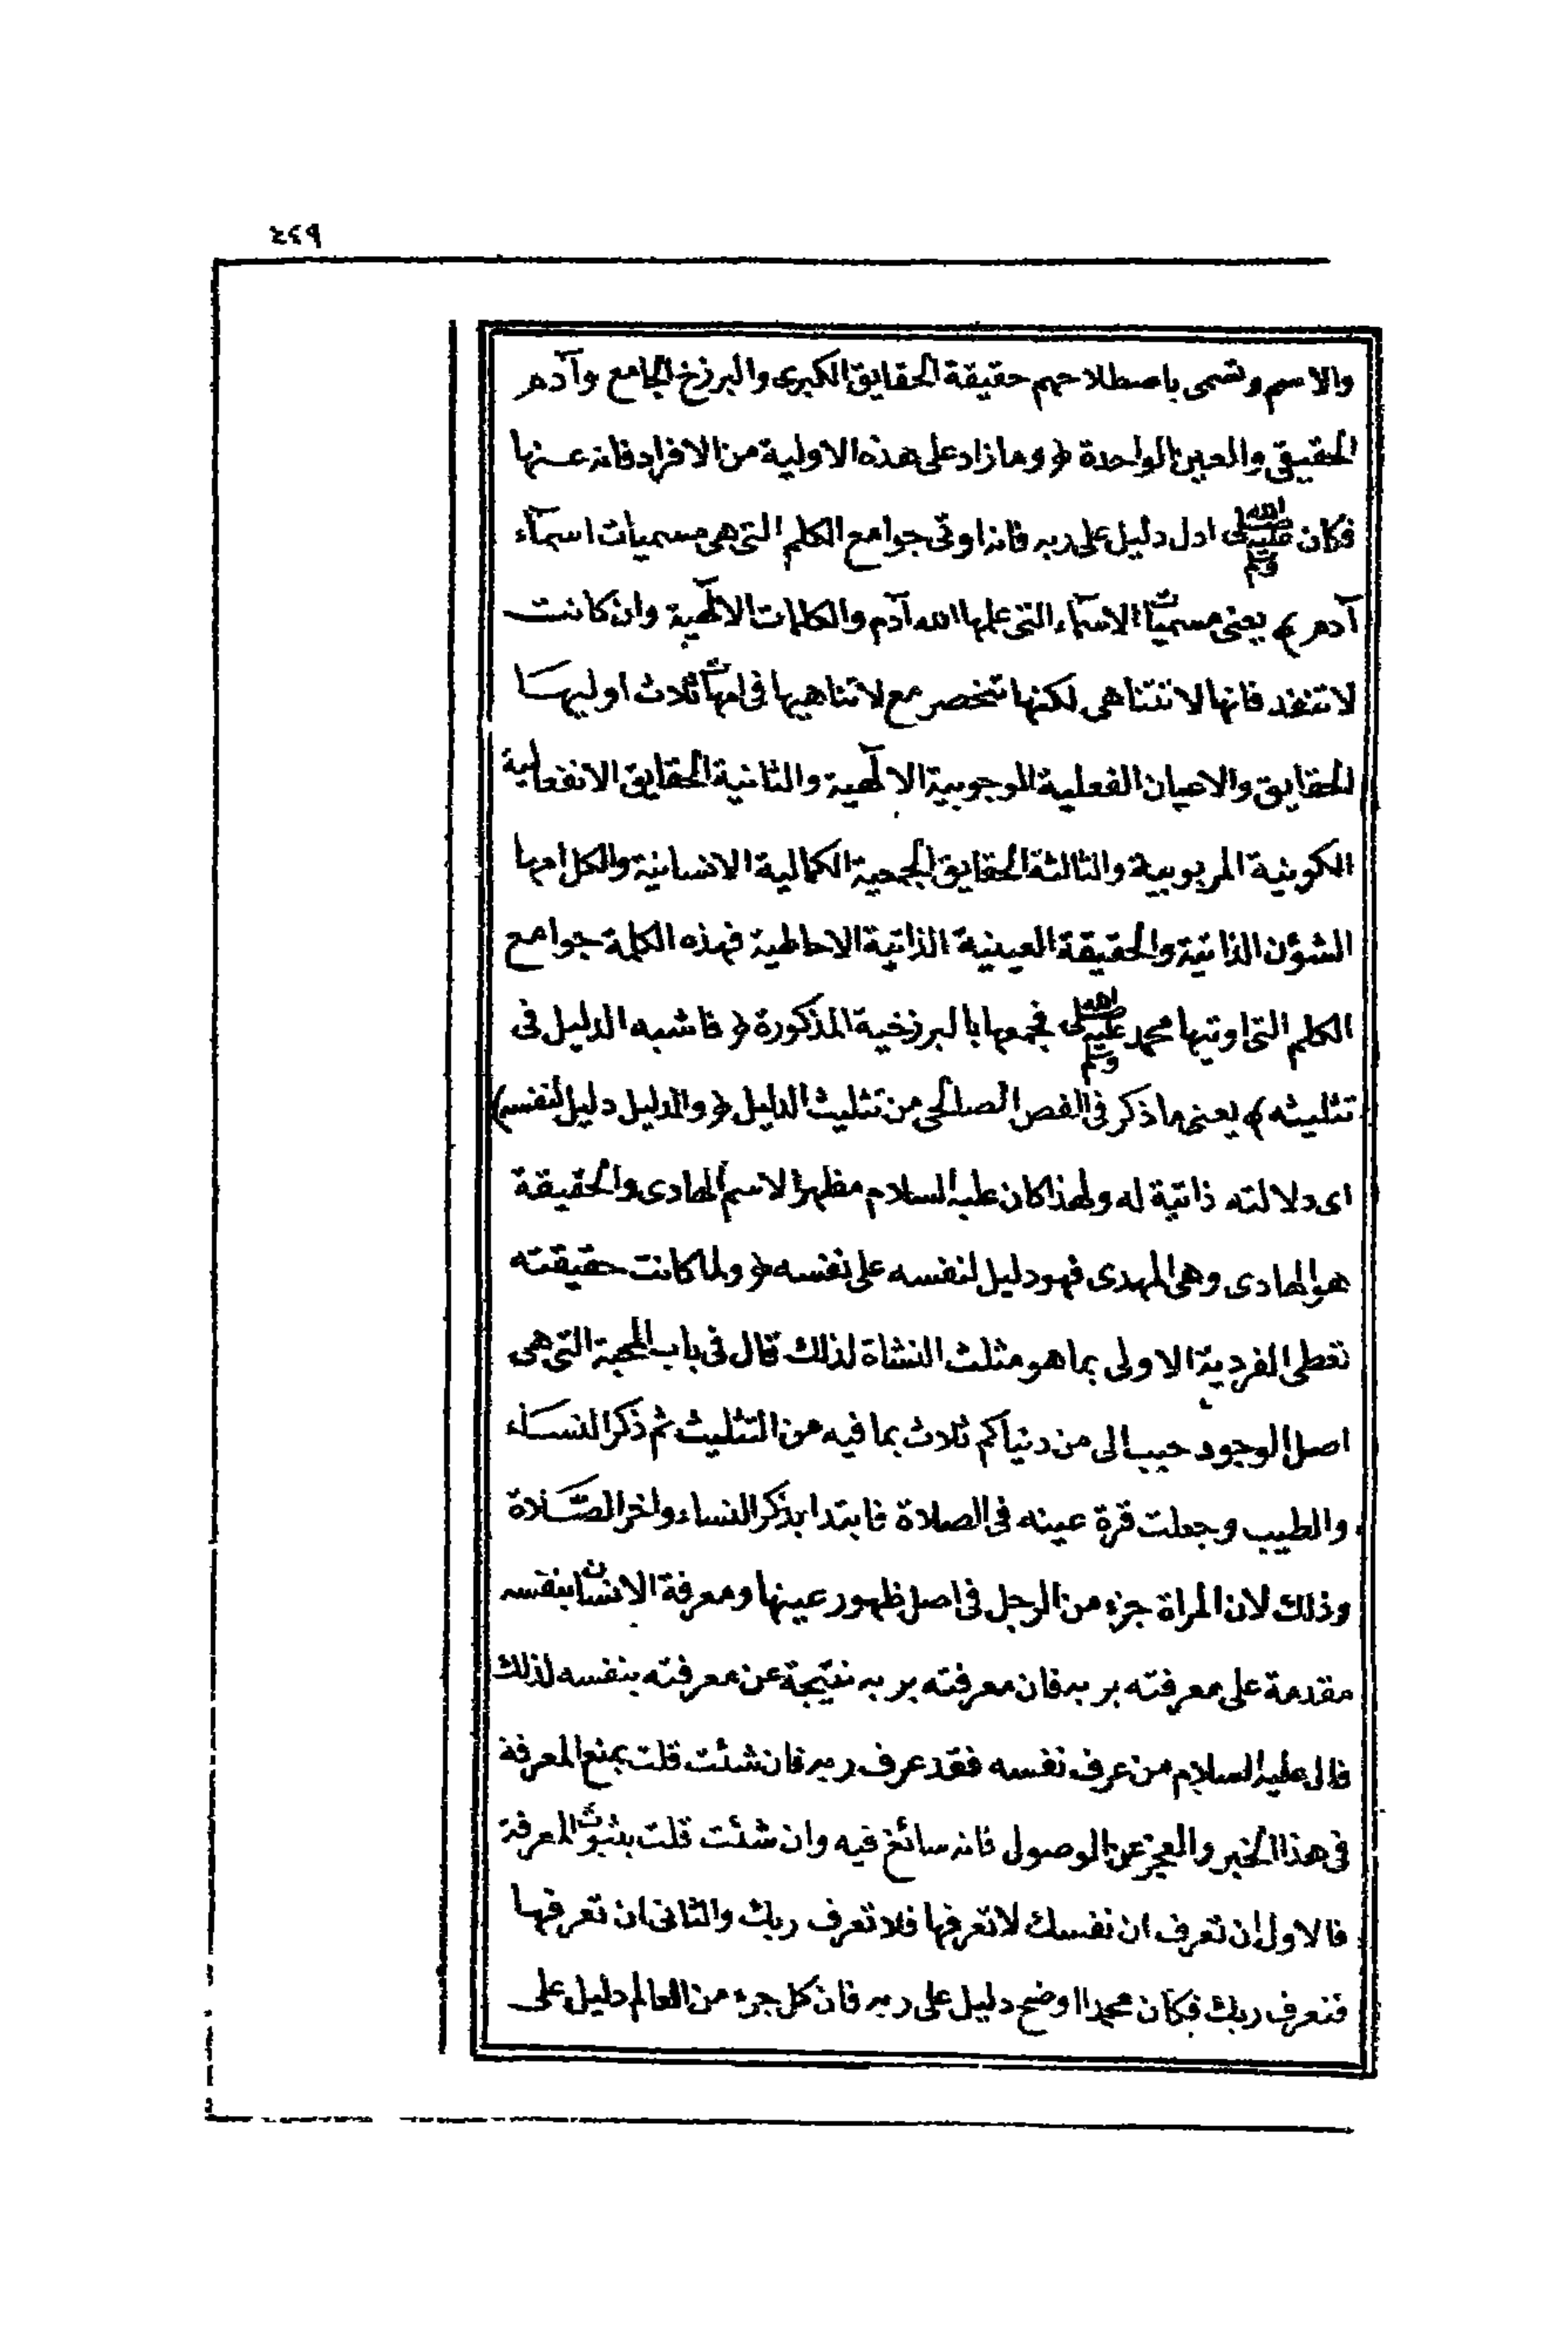 ٤٤٩
والاسم وتسمى باصطلاحهم حقيقة الحقايق الكبرى والبرزخ الجامع وآدم
الحقيقى والعين الواحدة ﴿ وما زاد على هذه الاولية من الافراد فانه عنها
فكان صلى الله عليه وسلم ادل دليل على ربه فانه اوتى جوامع الكلم التى هى مسميات اسمآء
آدم ﴾ يعنى مسميات الاسمآء التى علمها الله آدم والكلمات الالٓهية وان كانت
لا تنفد فانها لا تتناهى لكنها تنحصر مع لا تناهيها فى امهات ثلاث اوليها
الحقايق والاعيان الفعلية الوجوبية الالٓهية والثانية الحقايق الانفعالية
الكونية المربوبية والثالثة الحقايق الجمعية الكمالية الانسانية والكل امها
الشؤن الذاتية والحقيقة العينية الذاتية الاحاطية فهذه الكلمة جوامع
الكلم التى اوتيها محمد صلى الله عليه وسلم فجمعها بالبرزخية المذكورة ﴿ فاشبه الدليل فى
تثليثه ﴾ يعنى ما ذكر فى الفص الصالحى من تثليث الدليل ﴿ والدليل دليل لنفسه ﴾
اى دلالته ذاتية له ولهذا كان عليه السلام مظهرا لاسم الهادى والحقيقة
هو الهادى وهى المهدى فهو دليل لنفسه على نفسه ﴿ ولما كانت حقيقته
تعطى الفردية الاولى بما هو مثلث النشاة لذلك قال فى باب المحبة التى هى
اصل الوجود حبب الى من دنياكم ثلاث بما فيه من التثليث ثم ذكر النسآء
والطيب وجعلت قرة عينه فى الصلاة فابتدا بذكر النساء واخر الصلاة
وذلك لان المراة جزء من الرجل فى اصل ظهور عينها ومعرفة الانسان بنفسه
مقدمة على معرفته بربه فان معرفته بربه نتيجة عن معرفته بنفسه لذلك
قال عليه السلام من عرف نفسه فقد عرف ربه فان شئت قلت بمنع المعرفة
فى هذا الخبر والعجز عن الوصول فانه سائغ فيه وان شئت قلت بثبوت المعرفة
فالاول ان تعرف ان نفسك لا تعرفها فلا تعرف ربك والثانى ان تعرفها
فتعرف ربك فكان محمدا اوضح دليل على ربه فان كل جزء من العالم دليل على